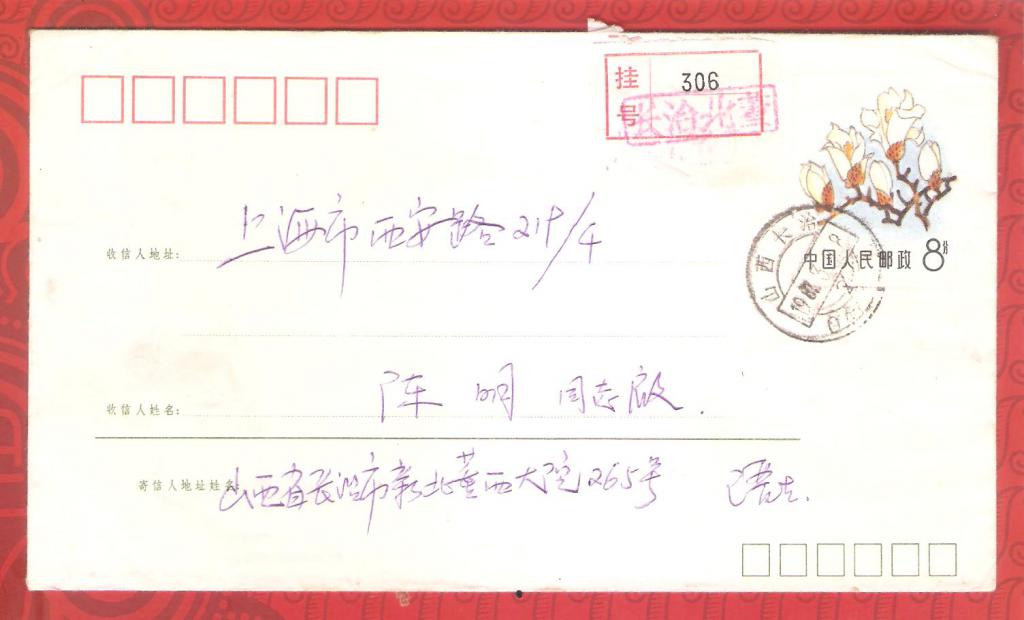 挂号 306
长治北董
中国人民邮政 8分
山西长治
收信人地址: 上海市西安路219/4
收信人姓名: 陈明 同志启.
寄信人地址姓名: 山西省长治市新北董西大院265号